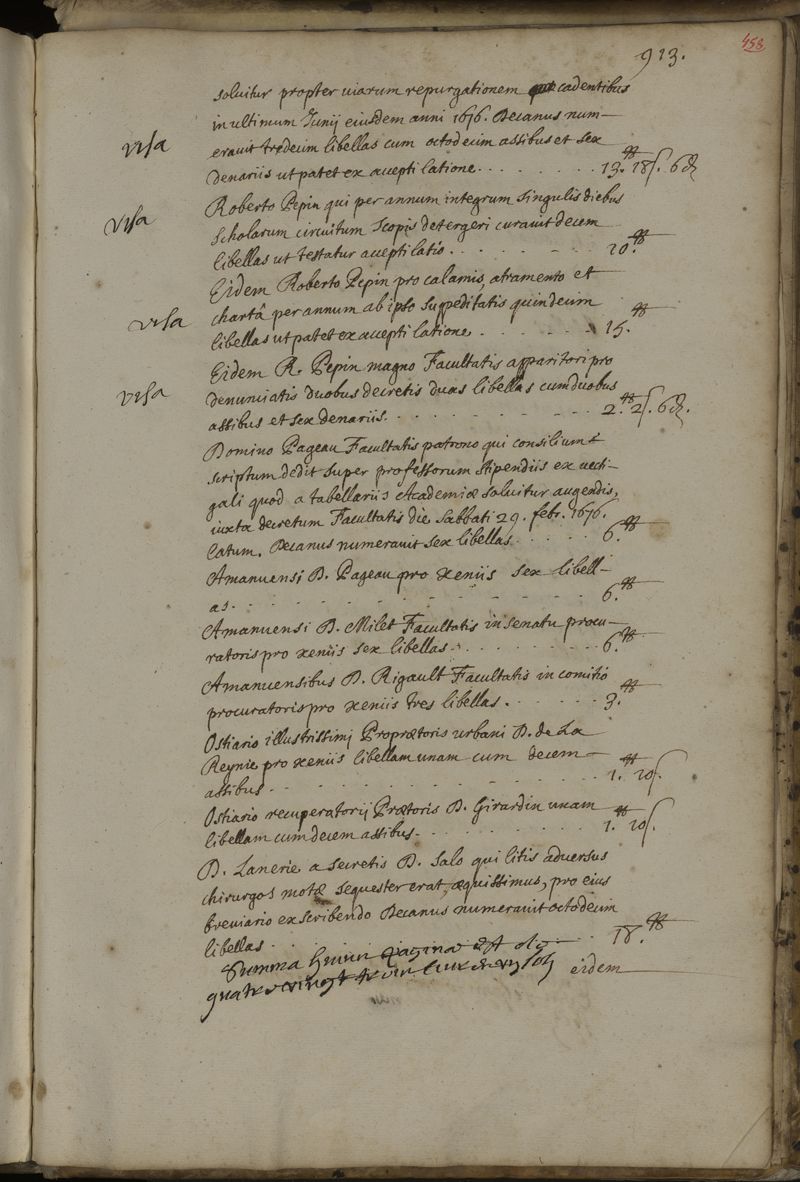 458
913.
soluitur propter viarum repurgationem cadentibus
in ultimum Junij eiusdem anni 1676. Decanus num-
visa
erauit tredecim libellas cum octodecim assibus et sex
denariis ut patet ex accepti latione. . . . . . . . 13.# 18s. 6d
Roberto Pepin qui per annum integrum singulis diebus
visa
scholarum circuitum scopis detergeri curauit decem
libellas ut testatur accepti latio. . . . . . . . 10.#
Eidem Roberto Pepin pro calamis, atramento et
visa
chartâ per annum ab ipso suppeditatis quindecim
libellas ut patet ex accepti latione. . . . . . . 15.#
Eidem R. Pepin magno Facultatis apparitori pro
visa
denunciatis duobus decretis duas libellas cum duobus
assibus et sex denariis. . . . . . . . . 2.# 2s. 6d.
Domino Pageau Facultatis patrono qui consilium &
scriptum dedit super professorum stipendiis ex vecti-
gali quod a tabellariis Academiæ soluitur augendis,
iuxta decretum Facultatis die Sabbati 29. febr. 1676.
latum. Decanus numerauit sex libellas. . . . . . 6.#
Amanuensi D. Pageau pro xeniis sex libell-
as. . . . . . . . . . . . 6.#
Amanuensi D. Milet Facultatis in senatu procu-
ratoris pro xeniis sex libellas. . . . . . . . . 6.#
Amanuensibus D. Rigault Facultatis in comitio
procuratoris pro xeniis tres libellas. . . . . . . 3.#
Ostiario illustrissimi Proprætoris urbani D. de La
Reynie pro xeniis libellam unam cum decem
assibus. . . . . . . . . . . . 1.# 10s.
Ostiario recuperatorij Prætoris D. Girardin unam
libellam cum decem assibus. . . . . . . . 1.# 10s.
D. Lanerie a secretis D. Salo qui litis adversus
chirurgos motæ sequester erat, æquissimus, pro eius
breviario exscribendo Decanus numerauit octodecim
libellas. . . . . . . . . . . . 18.#
Summa huius paginæ est
quatre vingt trois livres
eidem